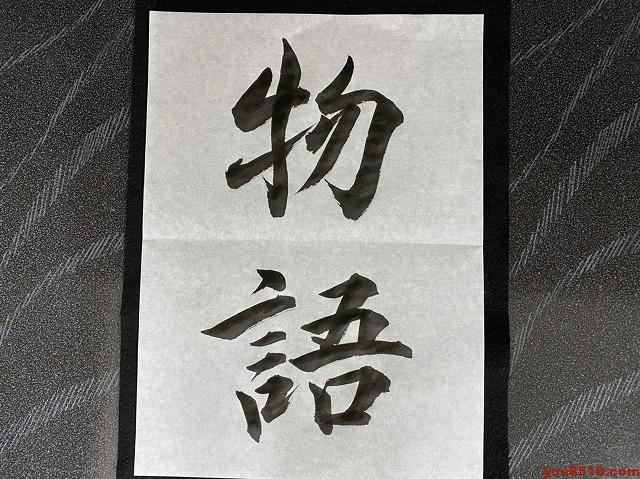 物語
yuu8510.com